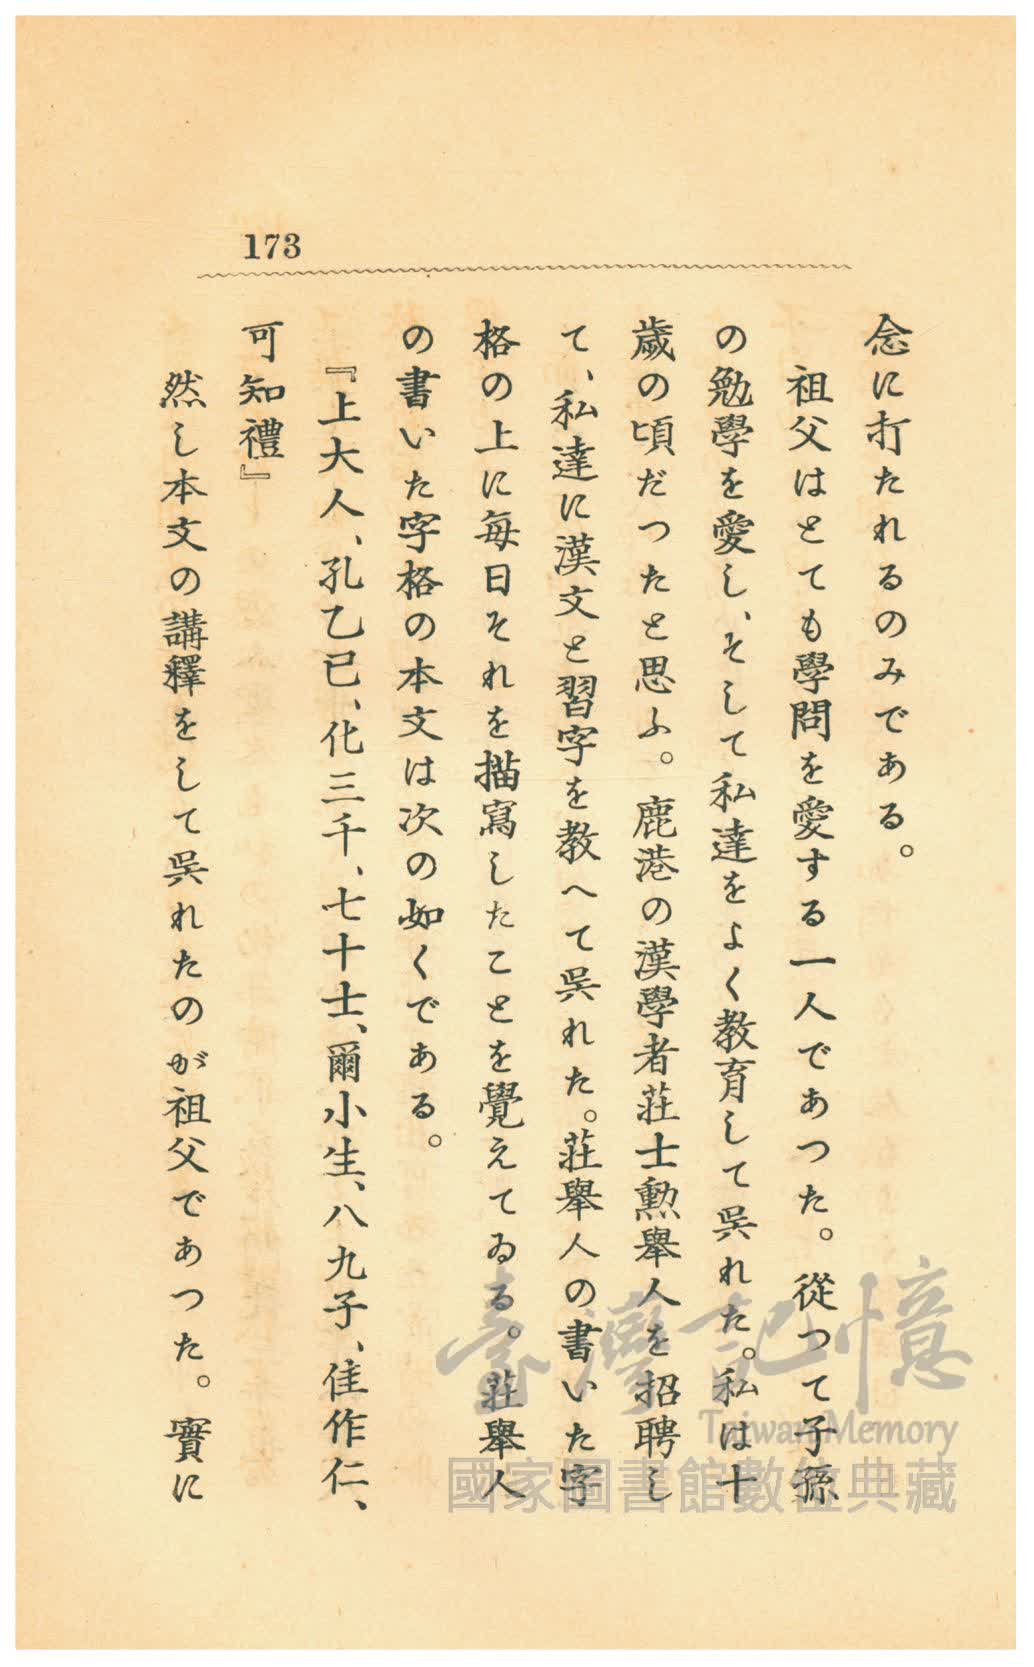 173
念に打たれるのみである。
祖父はとても學問を愛する一人であつた。從つて子孫
の勉學を愛し、そして私達をよく教育して呉れた。私は十
歲の頃だつたと思ふ。鹿港の漢學者莊士勳舉人を招聘し
て、私達に漢文と習字を教へて呉れた。莊舉人の書いた字
格の上に每日それを描寫したことを覺えてゐる。莊舉人
の書いた字格の本文は次の如くである。
『上大人、孔乙已、化三千、七十士、爾小生、八九子、佳作仁、
可知禮』
然し本文の講釋をして呉れたのが祖父であつた。實に
臺灣記憶
Taiwan Memory
國家圖書館數位典藏